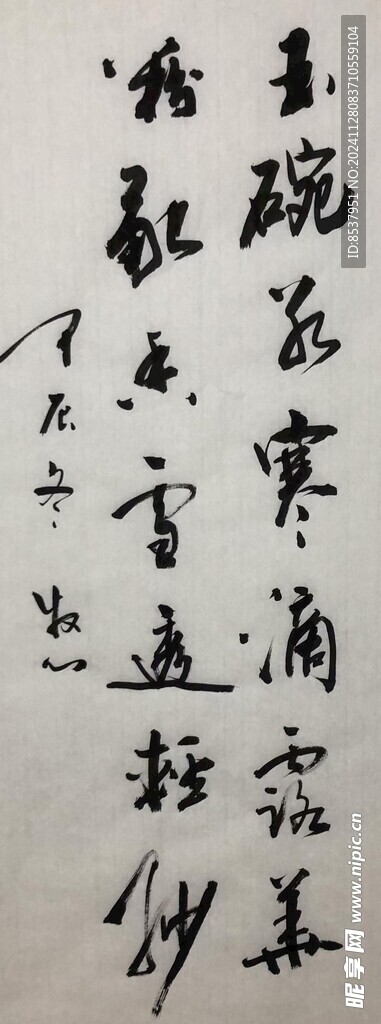 玉碗冰寒滴露華
粉融香雪透輕紗
甲辰冬 牧心
ID:8537951 NO:20241128083710559104
昵享网 www.nipic.cn